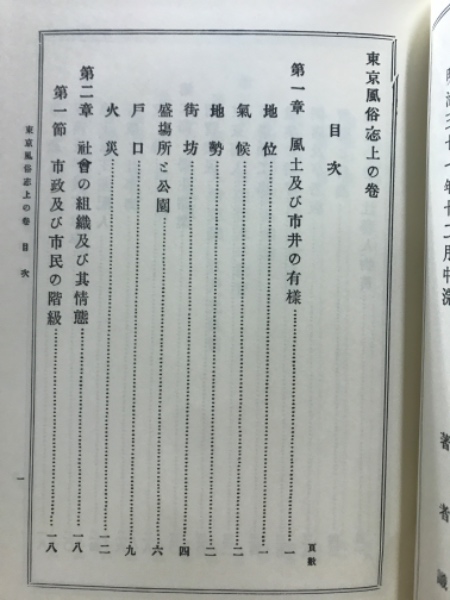 明治三十一年十二月中浣
著者識
東京風俗志上の卷
目次
頁數
第一章 風土及び市井の有樣……一
地位……一
氣候……二
地勢……二
街坊……四
盛塲所と公園……六
戸口……九
火災……一二
第二章 社會の組織及び其情態……一八
第一節 市政及び市民の階級……一八
東京風俗志上の卷 目次
一